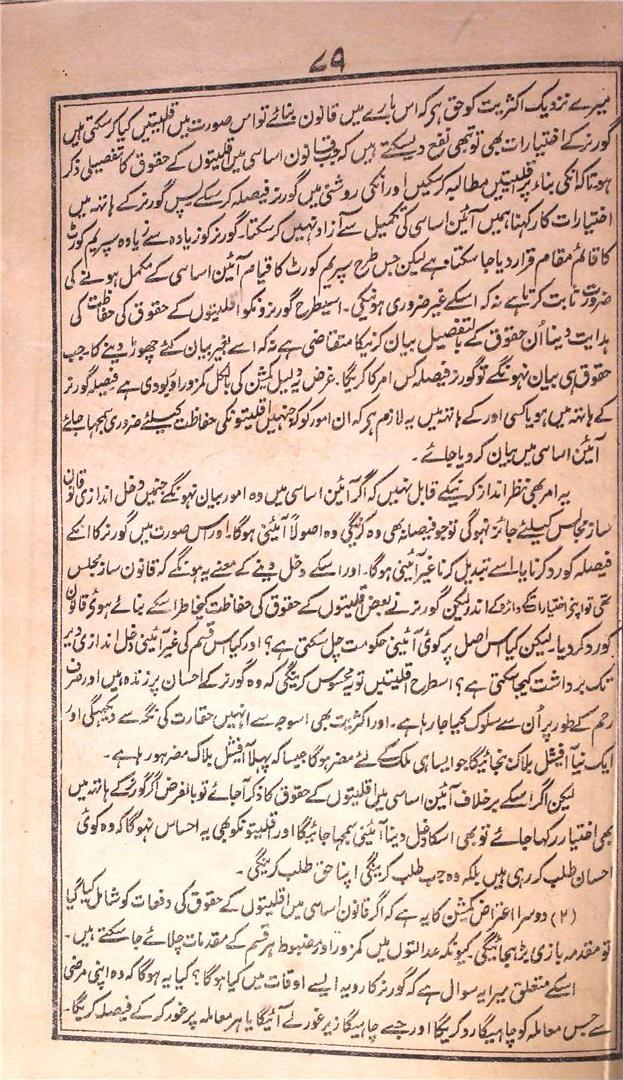 ۷۹
میرے نزدیک اکثریت کو حق ہی کہ اس بارے میں قانون بنائے تو اس صورت میں قلیتیں کیا کر سکتی ہیں
گورنر کے اختیارات بھی تو تبھی نفع دیسکتے ہیں کہ جب قانون اساسی میں قلیتوں کے حقوق کا تفصیلی ذکر
ہوتا کہ انکی بناء پر قلیتیں مطالبہ کر سکیں اور انکی روشنی میں گورنر فیصلہ کر سکے پس گورنر کے ہاتھ میں
اختیارات کا رکہنا ہمیں آئین اساسی کی تکمیل سے آزاد نہیں کر سکتا۔ گورنر کو زیادہ سے زیادہ سپریم کورٹ
کا قائم مقام قرار دیا جا سکتا ہے لیکن جس طرح سپریم کورٹ کا قیام آئین اساسی کے مکمل ہونے کی
ضرورت ثابت کرتا ہے نہ کہ اسکے غیر ضروری ہونیکی۔ اسیطرح گورنرونکو اقلیتوں کے حقوق کی حفاظت کی
ہدایت دینا اُن حقوق کے بالتفصیل بیان کرنیکا متقاضی ہے نہ کہ اسے بغیر بیان کئے چھوڑ دینے کا۔ جب
حقوق ہی بیان نہونگے تو گورنر فیصلہ کس امر کا کریگا۔ غرض یہ دلیل کمشن کی بالکل کمزور اور بودی ہے فیصلہ گورنر
کے ہاتھ میں ہو یا کسی اور کے ہاتھ میں یہ لازم ہی کہ ان امور کو کہ جنہیں اقلیتونکی حفاظت کیلئے ضروری سمجہا جائے
آئین اساسی میں بیان کر دیا جائے۔
یہ امر بھی نظر انداز کرنیکے قابل نہیں کہ اگر آئین اساسی میں وہ امور بیان نہونگے جنمیں دخل اندازی قانون
ساز مجالس کیلئے جائز نہوگی تو جو فیصلہ بھی وہ کرینگی وہ اصولاً آئینی ہوگا۔ اور اس صورت میں گورنر کا اسکے
فیصلہ کو رد کرنا یا اسے تبدیل کرنا غیر آئینی ہوگا۔ اور اسکے دخل دینے کے معنے یہ ہونگے کہ قانون ساز مجلس
تھی تو اپنے اختیارات کے دائرہ کے اندر لیکن گورنر نے بعض اقلیتوں کے حقوق کی حفاظت کیخاطر اسکے بنائے ہوئے قانون
کو رد کر دیا۔ لیکن کیا اس اصل پر کوئی آئینی حکومت چل سکتی ہے؟ اور کیا اس قسم کی غیر آئینی دخل اندازی دیر
تک برداشت کیجا سکتی ہے؟ اسطرح اقلیتیں تو یہ محسوس کرینگی کہ وہ گورنر کے احسان پر زندہ ہیں اور صرف
رحم کے طور پر اُن سے سلوک کیا جا رہا ہے۔ اور اکثریت بھی اسوجہ سے انہیں حقارت کی نگہ سے دیکھیگی اور
ایک نیا آفیشل بلاک بنجائیگا جو ایسا ہی ملک کے لئے مضر ہوگا جیسا کہ پہلا آفیشل بلاک مضر ہو رہا ہے۔
لیکن اگر اسکے برخلاف آئین اساسی میں اقلیتوں کے حقوق کا ذکر آ جائے تو بالفرض اگر گورنر کے ہاتھ میں
بھی اختیار رکھا جائے تو بھی اسکا دخل دینا آئینی سمجھا جائیگا اور اقلیتونکو بھی یہ احساس نہوگا کہ وہ کوئی
احسان طلب کر رہی ہیں بلکہ وہ جب طلب کرینگی اپنا حق طلب کرینگی۔
(۲) دوسرا اعتراض کمشن کا یہ ہے کہ اگر قانون اساسی میں اقلیتوں کے حقوق کی دفعات کو شامل کیا گیا
تو مقدمہ بازی بڑہجائیگی۔ کیونکہ عدالتوں میں کمزور اور مضبوط ہر قسم کے مقدمات چلائے جا سکتے ہیں۔
اسکے متعلق میرا یہ سوال ہے کہ گورنر کا رویہ ایسے اوقات میں کیا ہوگا؟ کیا یہ ہوگا کہ وہ اپنی مرضی
سے جس معاملہ کو چاہیگا رد کریگا اور جسے چاہیگا زیر غور لے آئیگا یا ہر معاملہ پر غور کر کے فیصلہ کریگا۔